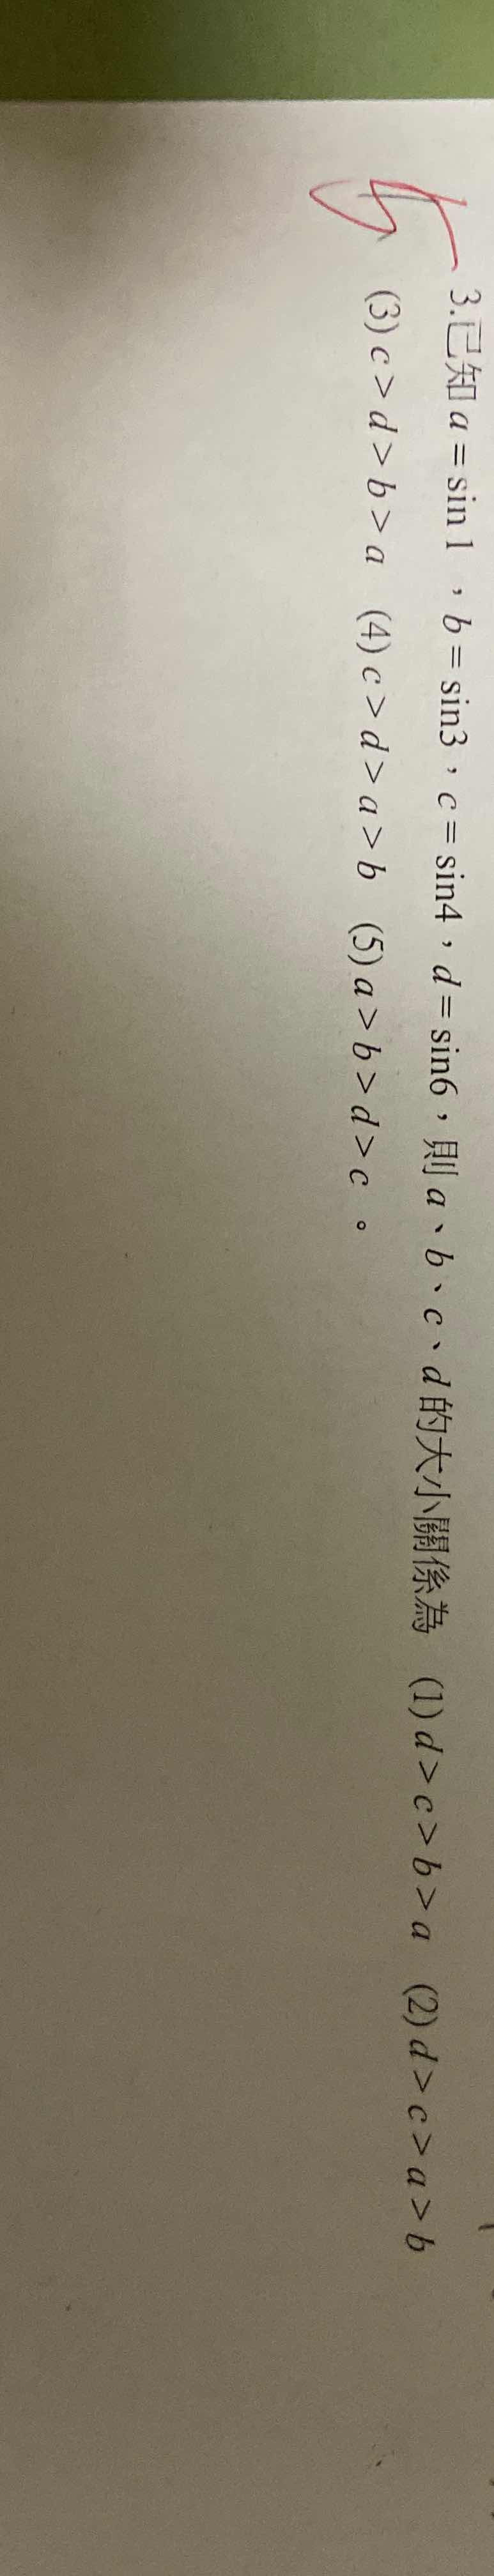 3.已知 a = sin 1 ，b = sin3，c = sin4，d = sin6，則 a、b、c、d 的大小關係為 (1) d > c > b > a (2) d > c > a > b
(3) c > d > b > a (4) c > d > a > b (5) a > b > d > c 。